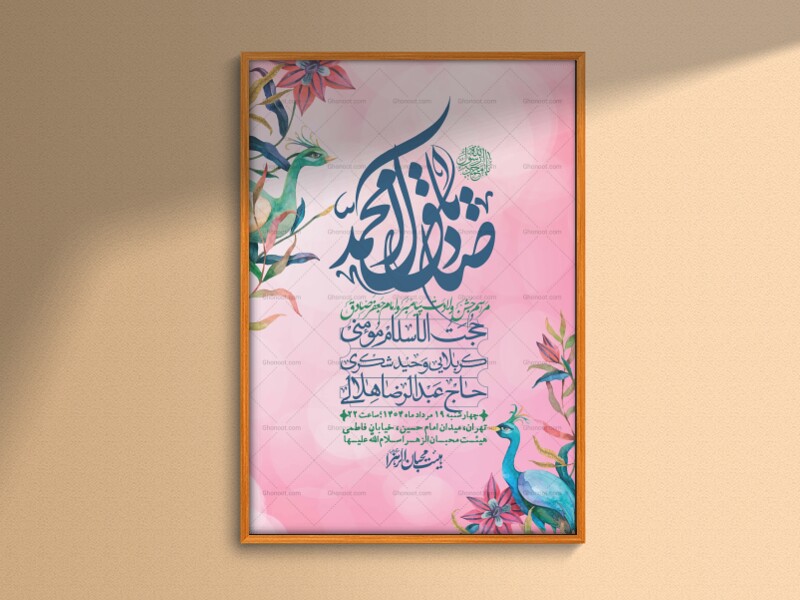 صادق آل محمد
مراسم جشن ولادت پیامبر و امام جعفر صادق
حجت الاسلام مومنی
کربلایی وحید شکری
حاج عبدالرضا هلالی
چهارشنبه ۱۹ مرداد ماه ۱۴۰۴ | ساعت ۲۲
تهران، میدان امام حسین، خیابان فاطمی
هیئت محبان الزهرا سلام الله علیها
هیئت محبان الزهرا
Ghonoot.com